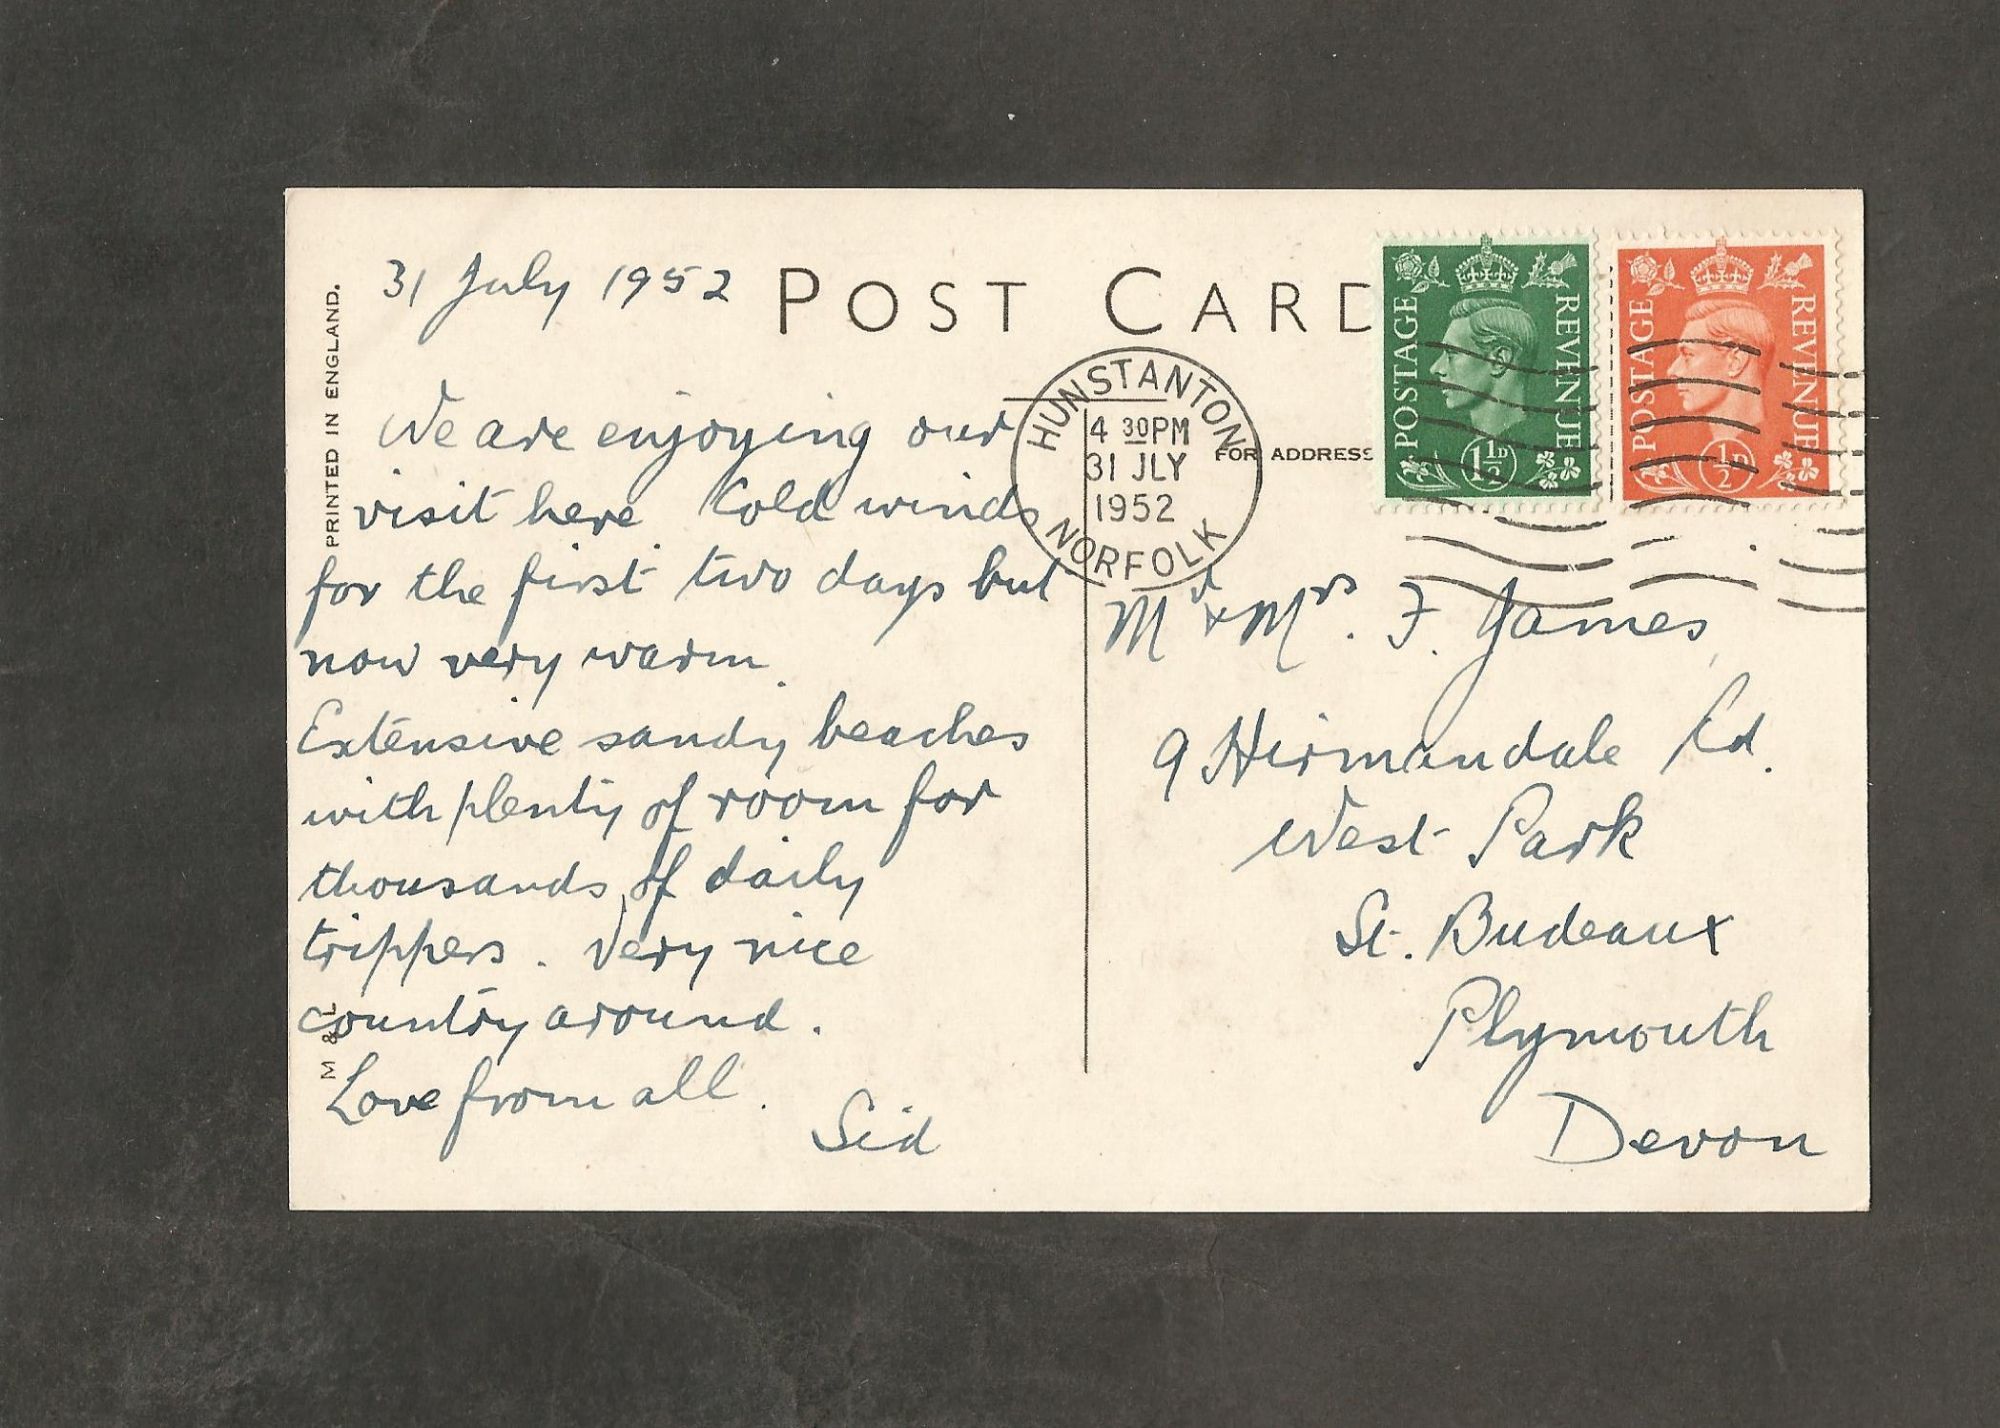 31 July 1952
POST CARD
PRINTED IN ENGLAND.
M & L
We are enjoying our
visit here. Cold winds
for the first two days but
now very warm.
Extensive sandy beaches
with plenty of room for
thousands of daily
trippers. Very nice
country around.
Love from all.
Sid
HUNSTANTON
4 30PM
31 JLY
1952
NORFOLK
FOR ADDRESS
POSTAGE REVENUE
1½D
POSTAGE REVENUE
½D
Mr & Mrs. F. James,
9 Hirmandale Rd.
West Park
St. Budeaux
Plymouth
Devon